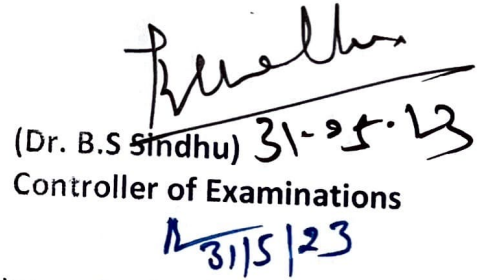 (Dr. B.S Sindhu) 31-05-23
Controller of Examinations
31/5/23